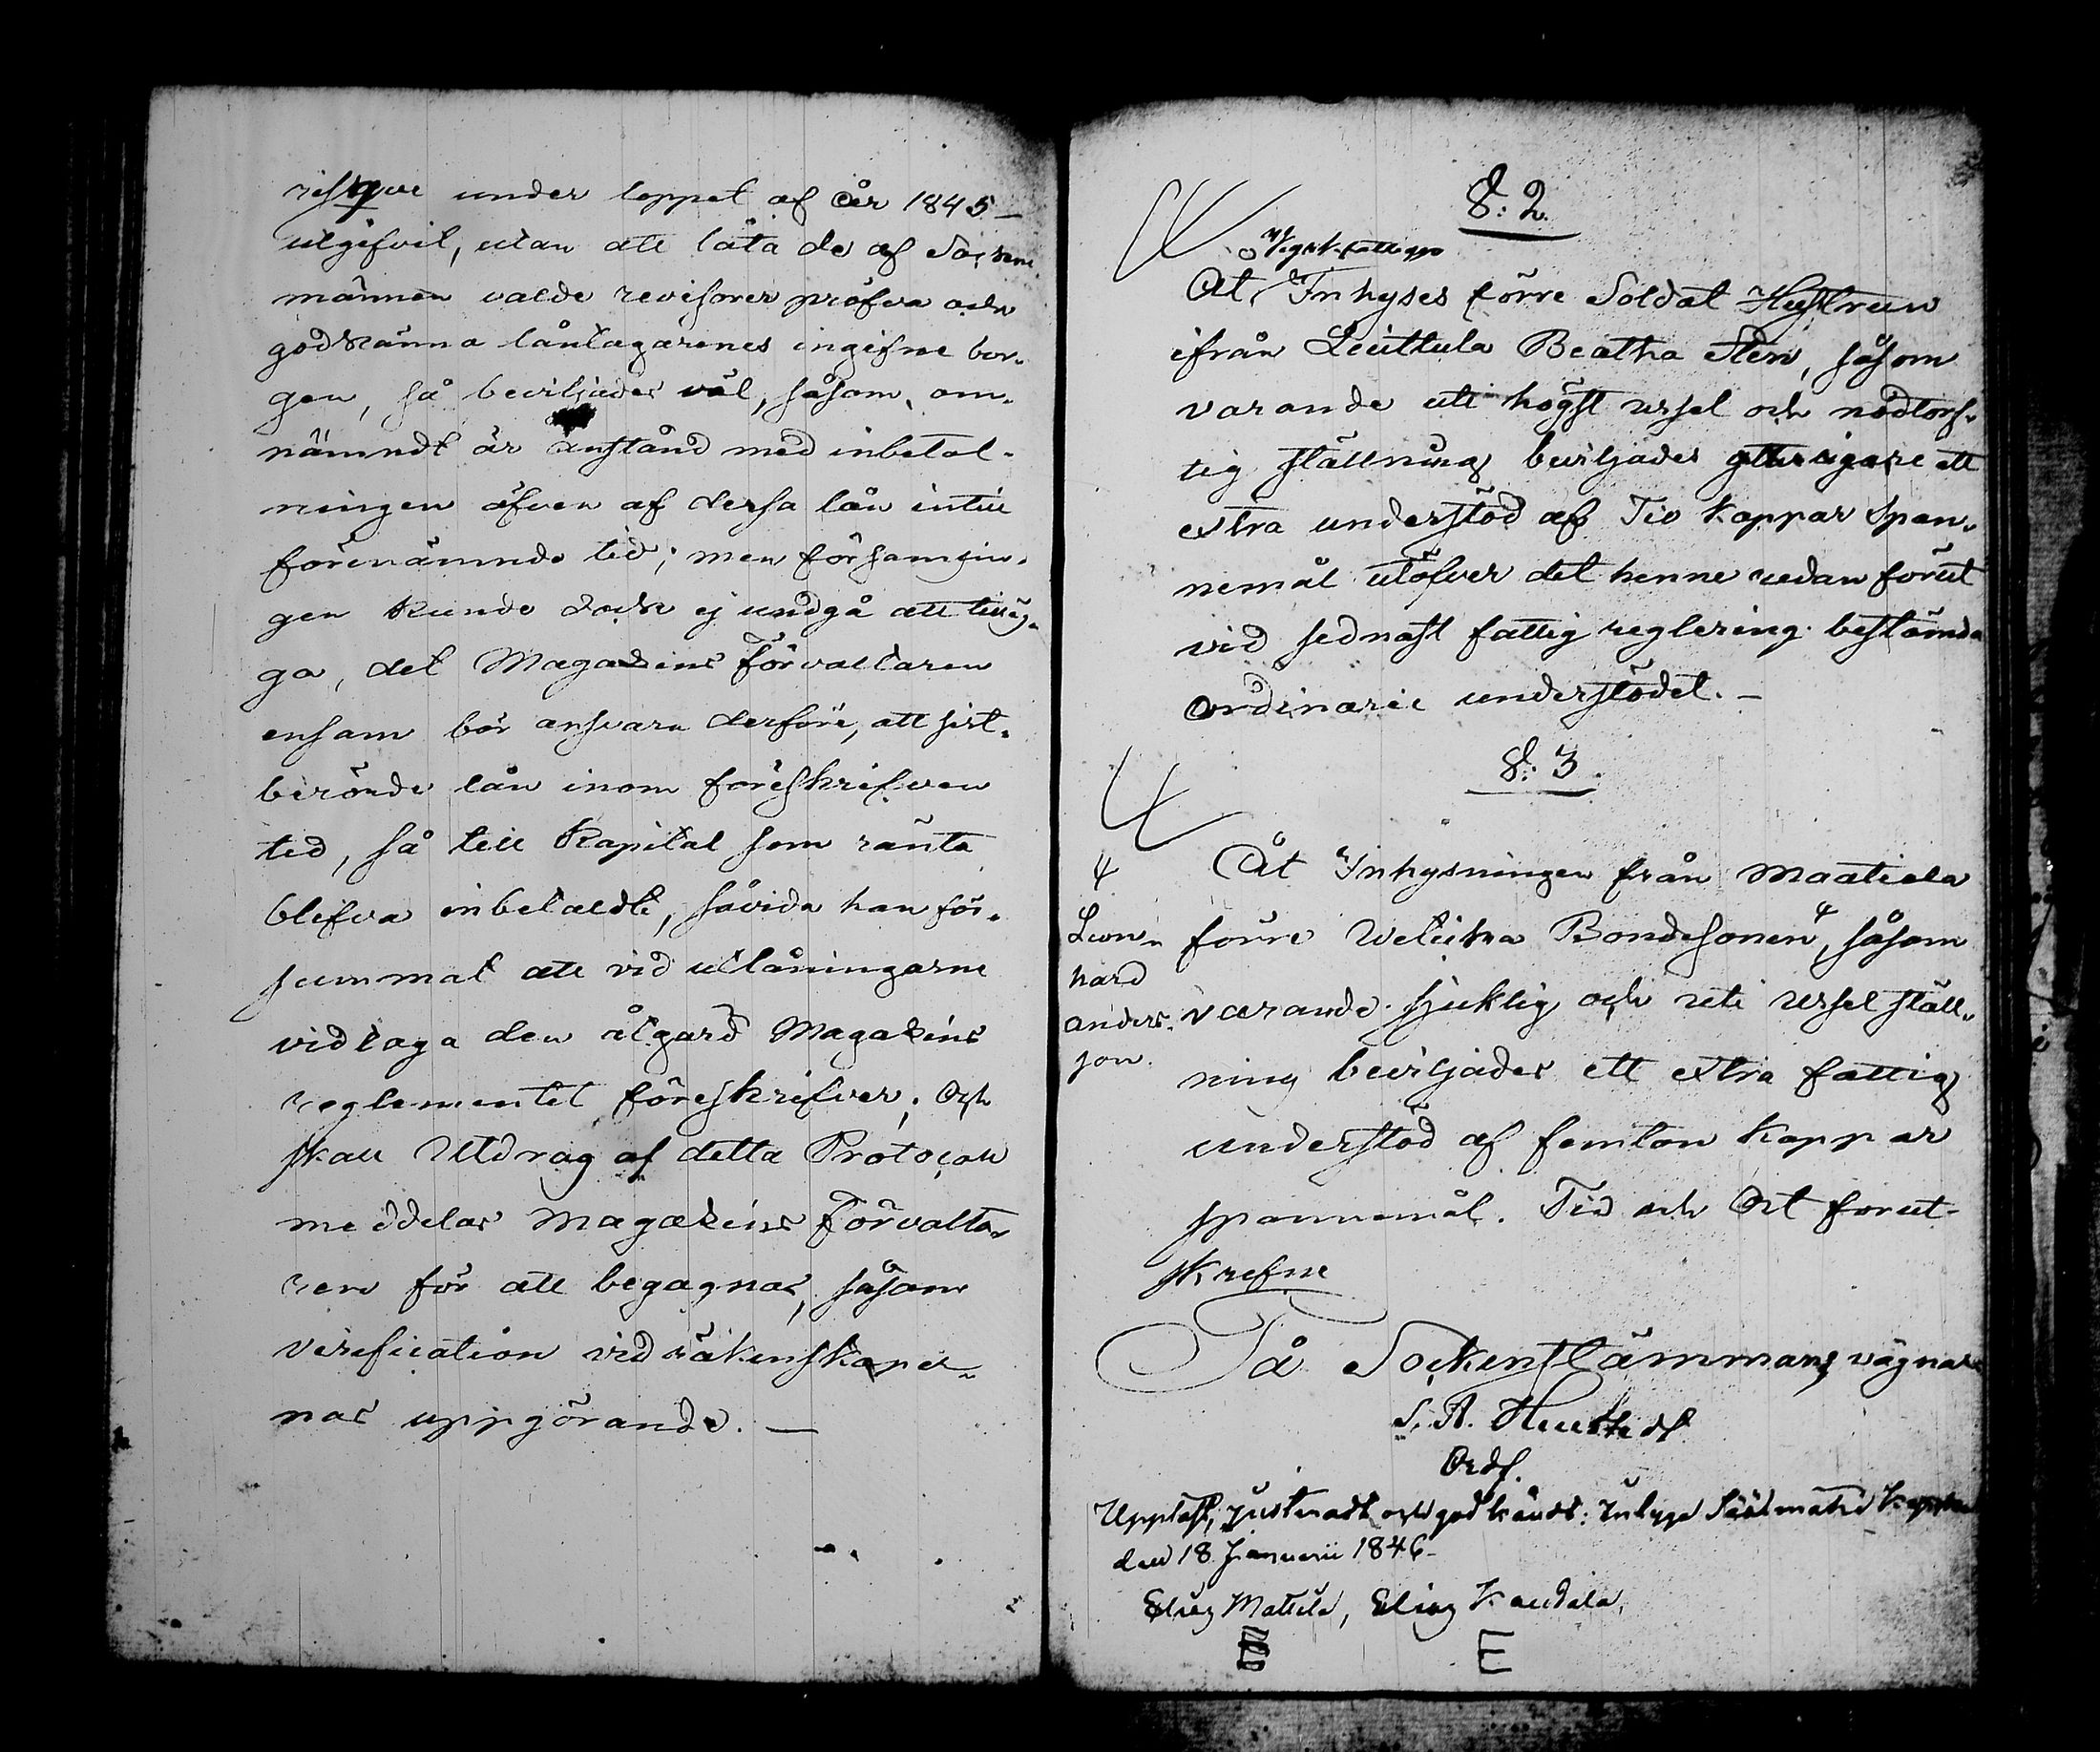 risque under loppet af år 1845 –
utgifvit, utan att låta de af Socken
männen valde revisorer pröfva och
godkänna låntagarenes ingifne bor-
gen, så beviljades väl, såsom om-
nämndt är anstånd med inbetal-
ningen äfven af dessa lån intill
förenämnde tid; men församlin-
gen kunde dock ej undgå att tilläg-
ga, det Magasins Förvaltaren
ensam bör ansvara derföre, att sist-
berörde lån inom föreskrifven
tid, så till Kapital som ränta
blifva inbetaldte, såvida han för-
summat att vid utlåningarne
vidtaga den åtgärd Magasins
reglementet föreskrifver; Och
skall Utdrag af detta Protocoll
meddelas Magasins Förvalta-
ren för att begagnas, såsom
verification vid räkenskaper-
nas uppgörande. —
§. 2.
At Inhyses förre Soldat Hustrun
ifrån Leuttula Beatha Sten, såsom
varande uti högst ussel och nödtorf-
tig ställning beviljades ytterligare ett
extra understöd af Tio Kappar Span-
nemål utöfver det henne redan förut
vid sednast fattig reglering bestämda
ordinarie understödet. –
§. 3.
Åt Inhysningen från Maatiala
förre Bondesonen ψ, såsom
varande sjuklig och uti ussel ställ-
ning beviljades ett extra fattig
understöd af femton Kappar
spannemål. Tid och Ort forut-
skrefne
ψ
Leon-
hard
Anders-
son.
På Sockenstämmans vägnar
Ordf.
Uppläst, Justeradt och godkändt:
den 18 Januarii 1846–
Elias Mattila, Elias Kaudila,
E